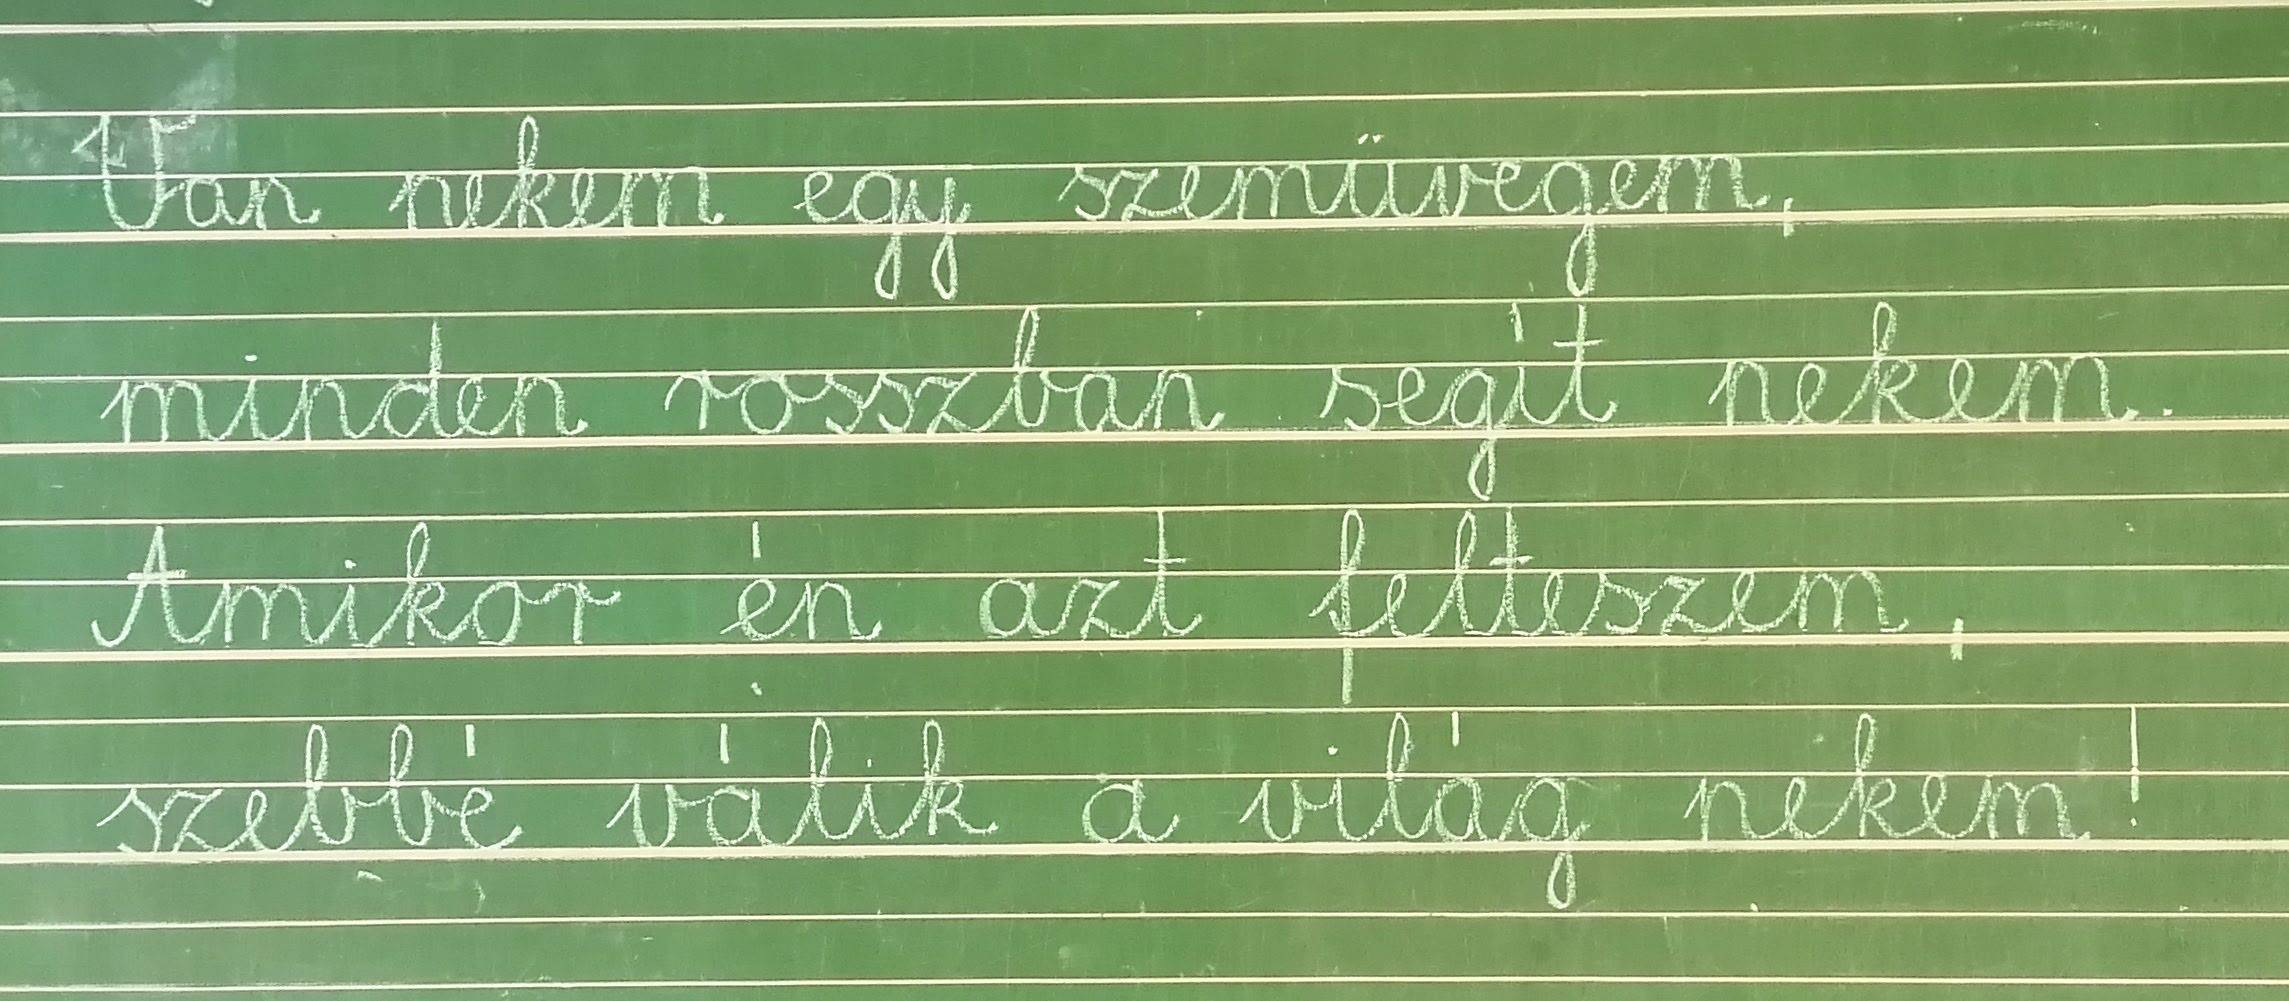 Van nekem egy szemüvegem,
minden rosszban segít nekem.
Amikor én azt felteszem,
szebbé válik a világ nekem!